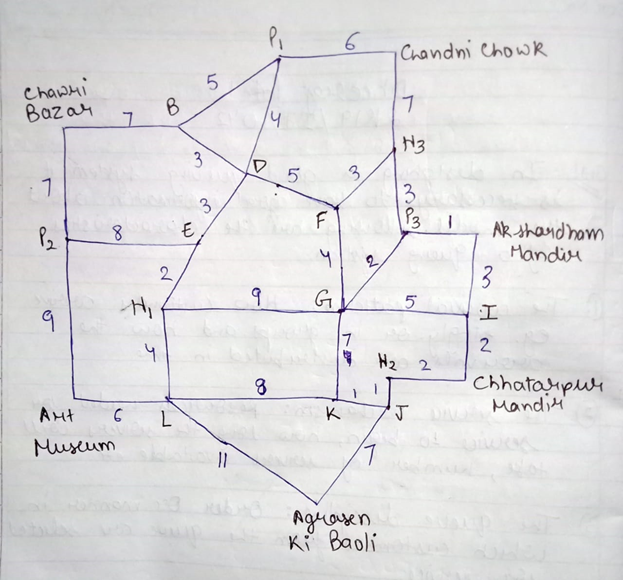 P1
6
Chandni Chowk
Chawri
Bazar
7
B
5
4
7
3
D
5
3
H3
7
3
F
3
P3
1
Akshardham
Mandir
P2
8
E
4
2
3
2
H1
9
G
5
I
9
4
7
H2
2
2
Chhatarpur
Mandir
8
1
1
Art
Museum
6
L
K
J
11
7
Agrasen
Ki Baoli